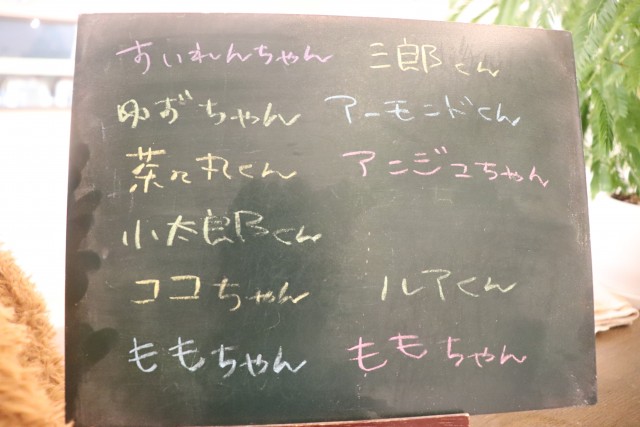 すいれんちゃん
ゆずちゃん
茶々丸くん
小太郎くん
ココちゃん
ももちゃん
三郎くん
アーモンドくん
アンジュちゃん
ルアくん
ももちゃん